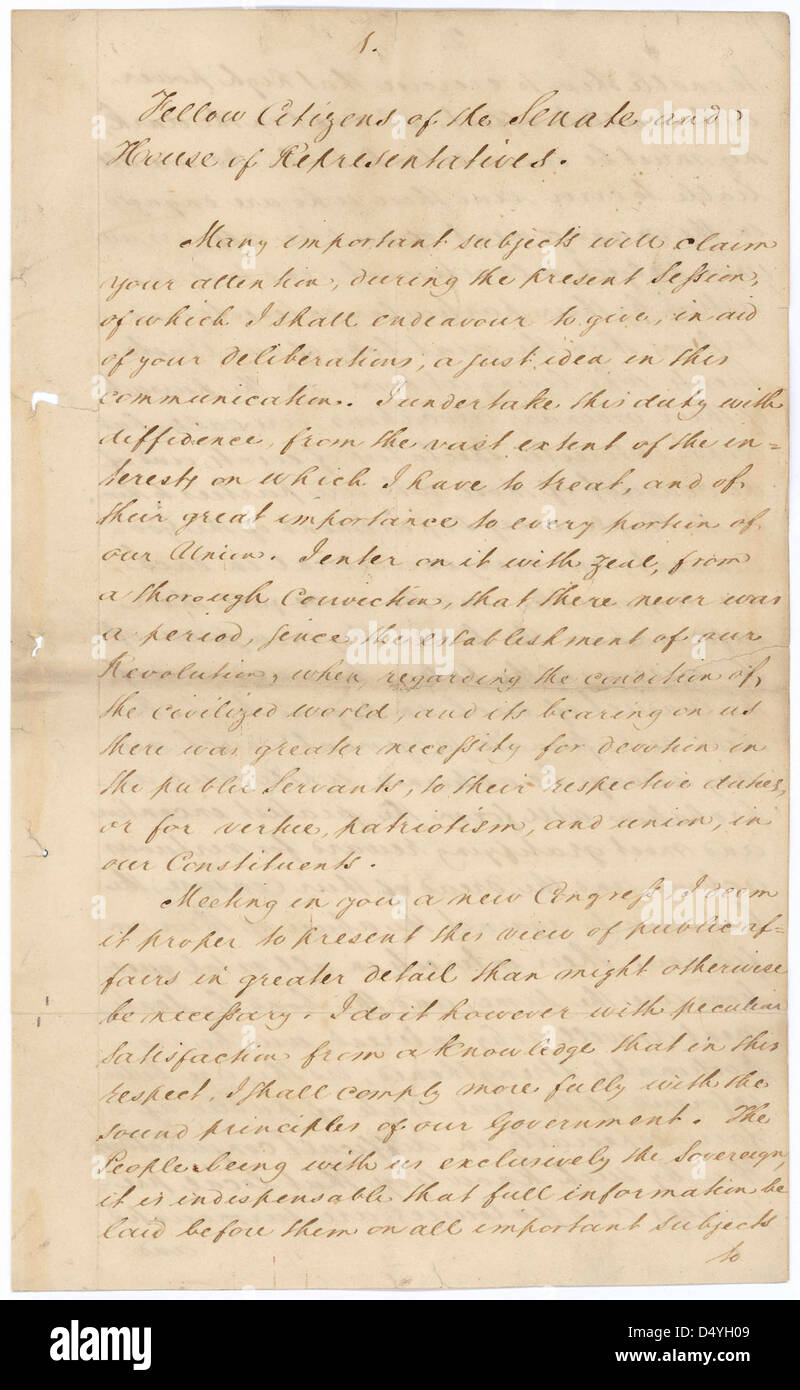 1.
Fellow Citizens of the Senate and
House of Representatives.
Many important subjects will claim
your attention, during the present Session,
of which I shall endeavour to give, in aid
of your deliberations, a just idea in this
communication. I undertake this duty with
diffidence, from the vast extent of the in=
terests on which I have to treat, and of
their great importance to every portion of
our Union. I enter on it with zeal, from
a thorough Conviction, that there never was
a period, since the establishment of our
Revolution, when, regarding the condition of,
the civilized world, and its bearing on us
there was greater necessity for devotion in
the public Servants, to their respective duties,
or for virtue, patriotism, and union, in
our Constituents.
Meeting in you a new Congress, I deem
it proper to present this view of public af=
fairs in greater detail than might otherwise
be necessary. I do it however with peculiar
satisfaction from a knowledge that in this
respect, I shall comply more fully with the
sound principles of our Government. The
People being with us exclusively the Sovereign,
it is indispensable that full information be
laid before them on all important subjects
to
alamy
Image ID: D4YH09
www.alamy.com